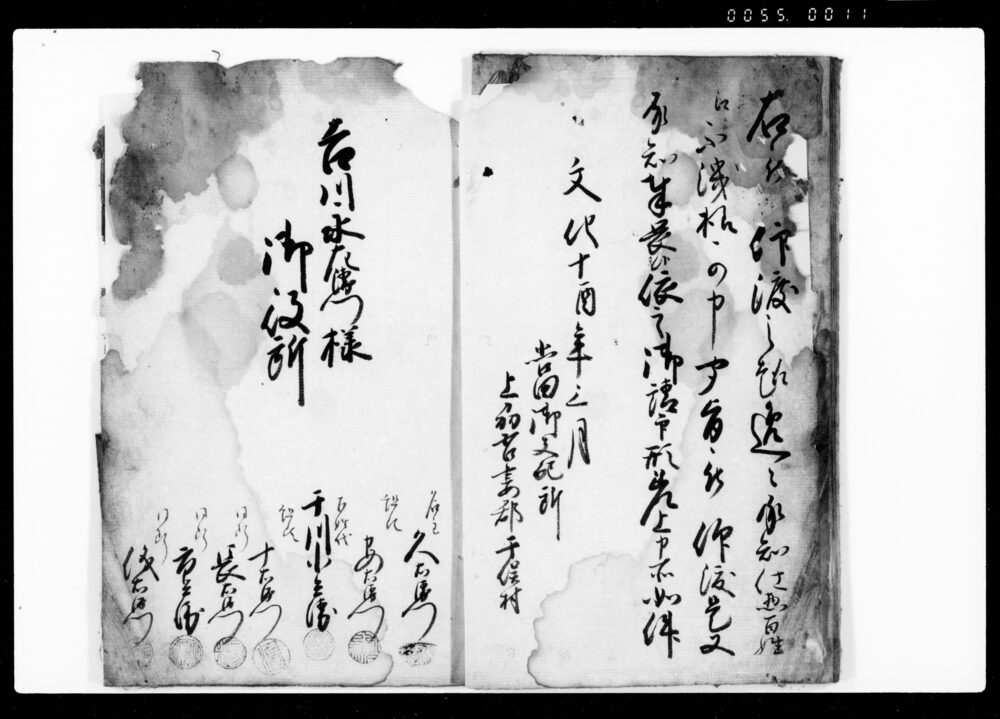 0055. 0011
右被 仰渡之趣逐一承知仕惣百姓
江不洩様可申聞旨被 仰渡是又
承知奉畏候依之御請印形差上申所如件
文化十酉年三月
当国御支配所
上州吾妻郡 干俣村
名主
久右衛門
組頭
安右衛門
百姓代
干川小兵衛
組頭
十右衛門
同断
長右衛門
同断
市兵衛
同断
右衛門
吉川永左衛門様
御役所